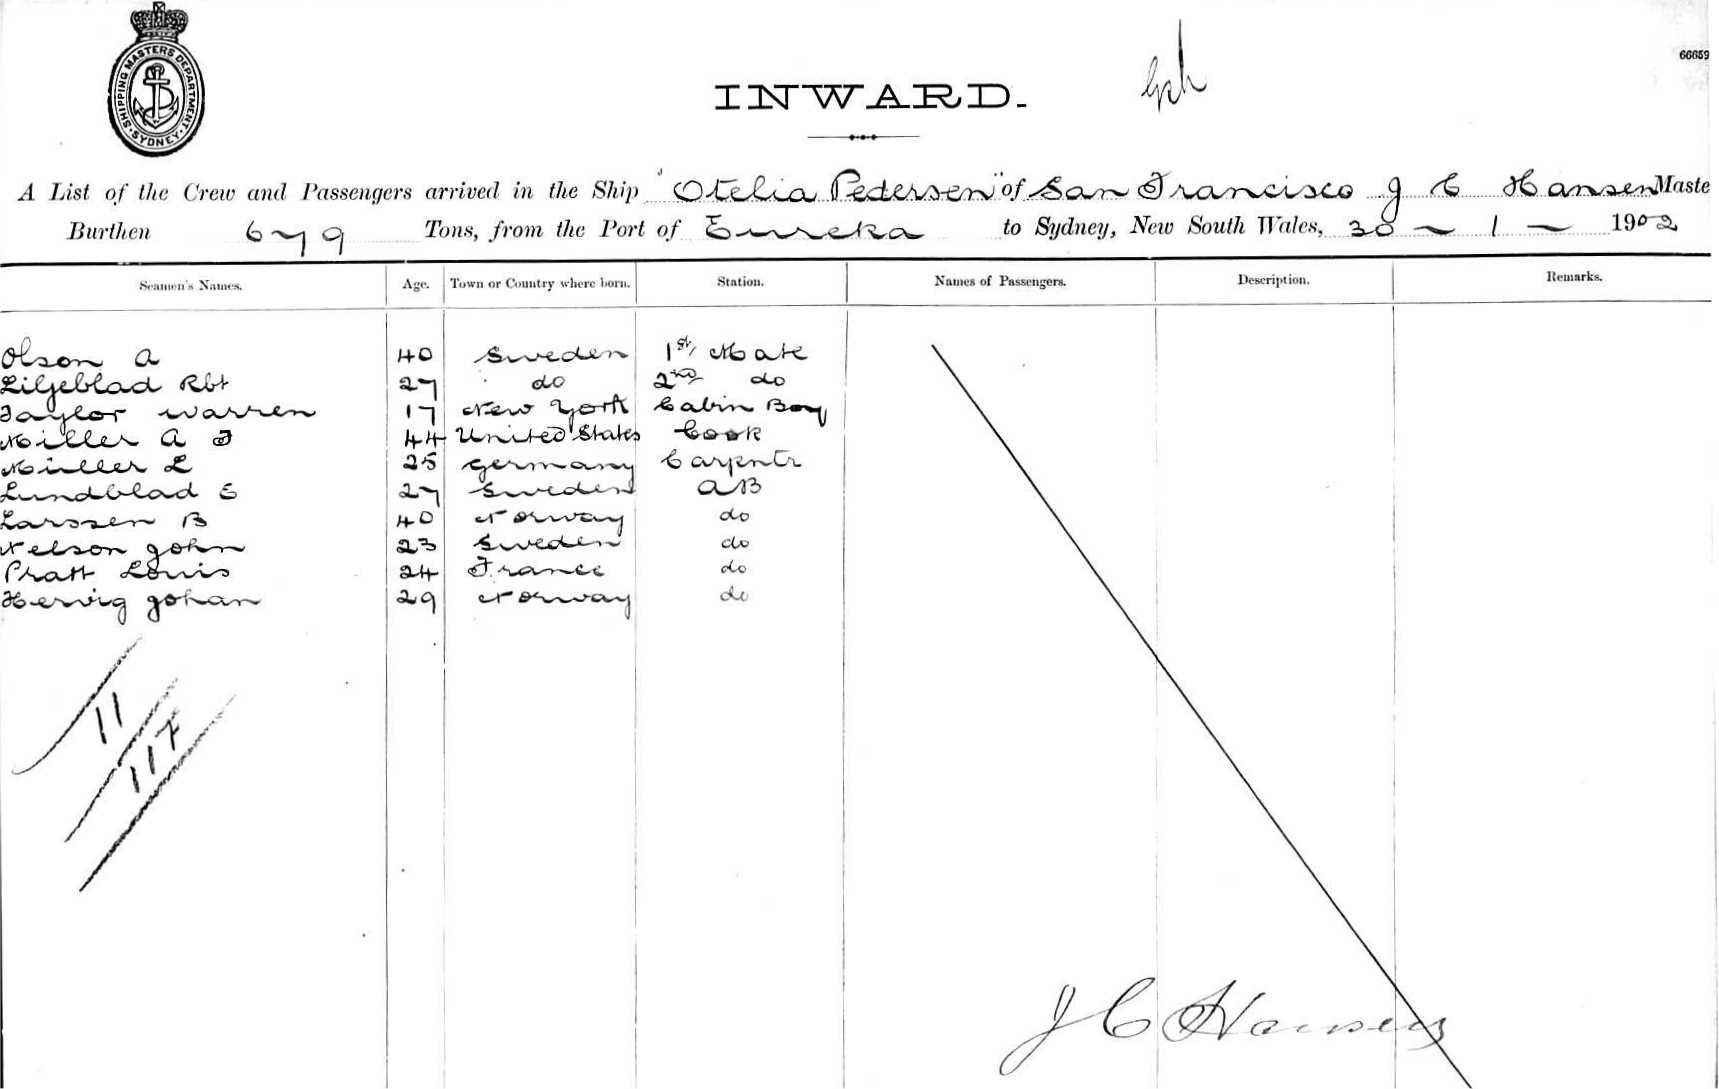 SHIPPING MASTERS DEPARTMENT. SYDNEY
66659
INWARD.
A List of the Crew and Passengers arrived in the Ship "Otelia Pedersen" of San Francisco J C Hansen Maste
Burthen 679 Tons, from the Port of Eureka to Sydney, New South Wales, 30 ~ 1 ~ 1902
Seamen's Names. Age. Town or Country where born. Station. Names of Passengers. Description. Remarks.
Olson A 40 Sweden 1st Mate
Liljeblad Rbt 27 do 2nd do
Taylor Warren 17 New York Cabin Boy
Miller A J 44 United States Cook
Miller L 25 Germany Carpntr
Lundblad E 27 Sweden AB
Larssen B 40 Norway do
Nelson John 23 Sweden do
Pratt Louis 24 France do
Hervig Johan 29 Norway do
11
117
J C Hansen